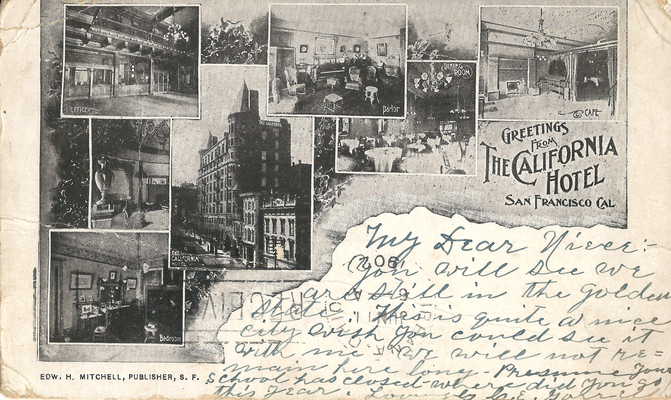 OFFICE
Parlor
DINING ROOM
CAFE
GREETINGS
FROM
THE CALIFORNIA
HOTEL
SAN FRANCISCO CAL
THE
CALIFORNIA
Bedroom
My Dear Niece:-
(206)
You will see we
are still in the golden
State. This is quite a nice
city wish you could see it
with me. We will not re-
main here long - Presume your
School has closed - where did you go
this Year. Lovingly
EDW. H. MITCHELL, PUBLISHER, S. F.